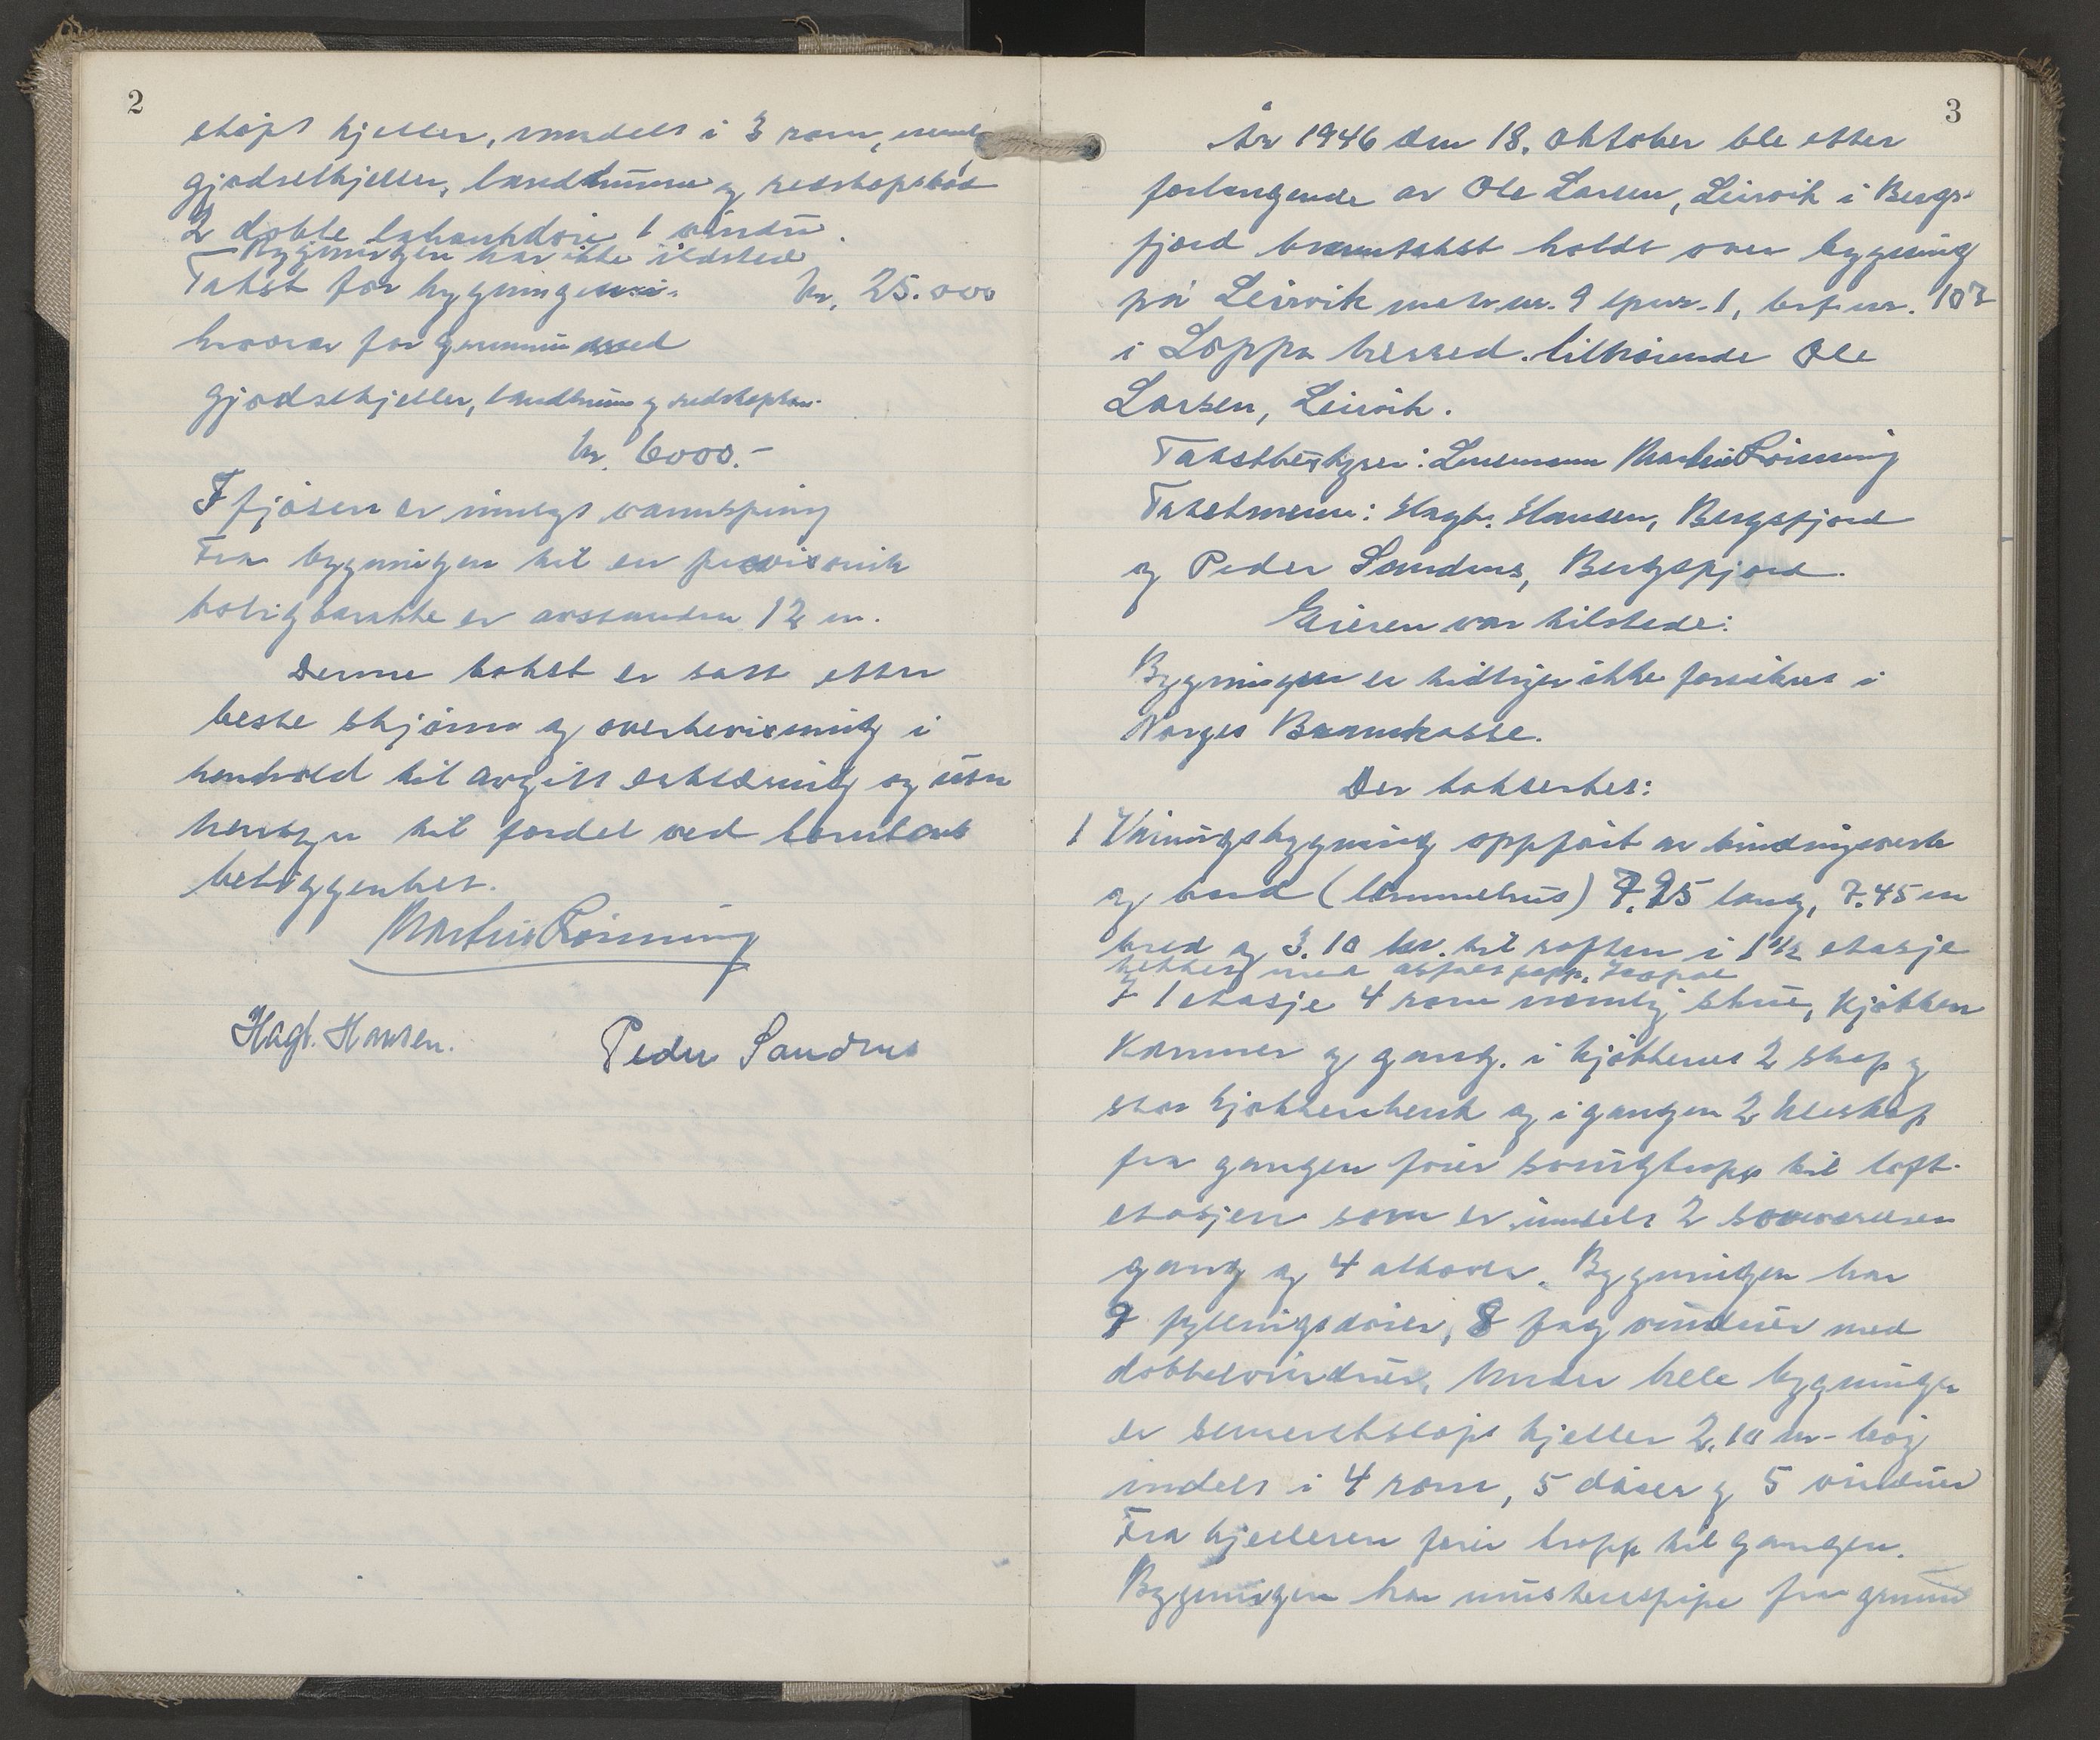 2
støpt kjeller, inndelt i 3 rom, nemlig
gjødselkjeller, landkum og redskapsbod
2 doble labankdøre 1 vindu.
Bygningen har ikke ildsted
Takst for bygningen: kr. 25.000
herav for grunnmur med
gjødselkjeller, landkum og redskapsbod
kr. 6000.-
I fjøsen er innlagt vannspring
Fra bygningen til en provisorisk
boligbarakke er avstanden 12 m.
Denne takst er satt etter
beste skjønn og overbevisning i
henhold til avgitt erklæring og uten
hensyn til fordel ved tomtens
beliggenhet.
Martin Lønning
Hagb. Hansen. Peder Sandnes
3
År 1946 den 18. oktober ble etter
forlangende av Ole Larsen, Leirvik i Bergs-
fjord branntakst holdt over bygning
på Leirvik matr.nr. 9 løpnr. 1, brf.nr. 107
i Loppa herred tilhørende Ole
Larsen, Leirvik.
Takstbestyrer: Lensmann Martin Lønning
Takstmenn: Hagb. Hansen, Bergsfjord
og Peder Sandnes, Bergsfjord.
Eieren var tilstede:
Bygningen er tidligere ikke forsikret i
Norges Brannkasse.
Der taksertes:
1 Våningsbygning oppført av bindingsverk
og bord (lemmehus) 7.95 lang, 7.45 m
bred og 3.10 m. til raften i 1 1/2 etasje
tekket med asfaltpapp.
I 1 etasje 4 rom nemlig stue, kjøkken
kammer og gang. i kjøkkenet 2 skap og
stor kjøkkenbenk og i gangen 2 kleskap
fra gangen fører svingtrapp til loft-
etasjen som er inndelt 2 soveværelser
gang og 4 alkover. Bygningen har
9 fyllingsdører, 8 fag vinduer med
dobbelvinduer. Under hele bygningen
er sementstøpt kjeller 2.10 m. høg
inndelt i 4 rom, 5 dører og 5 vinduer
Fra kjelleren fører trapp til gangen.
Bygningen har murstenspipe fra grunn